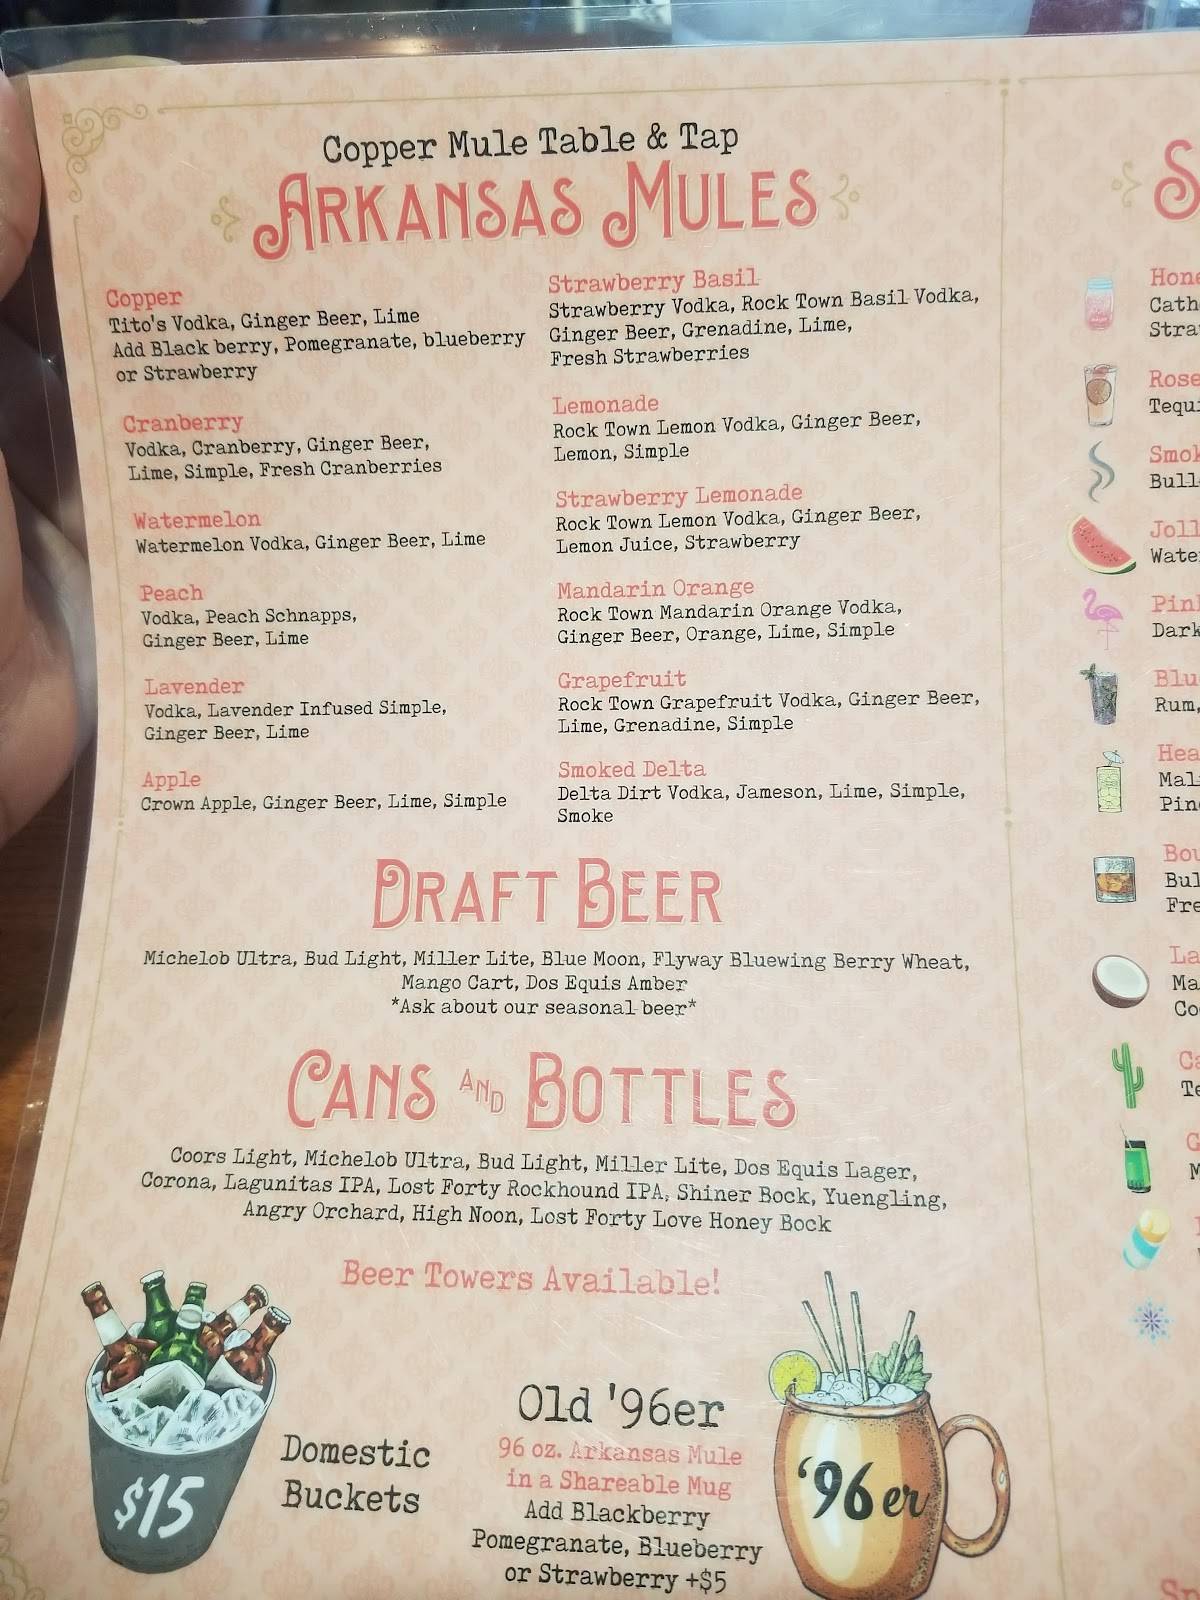 Copper Mule Table & Tap
ARKANSAS MULES
Copper
Tito's Vodka, Ginger Beer, Lime
Add Black berry, Pomegranate, blueberry
or Strawberry
Cranberry
Vodka, Cranberry, Ginger Beer,
Lime, Simple, Fresh Cranberries
Watermelon
Watermelon Vodka, Ginger Beer, Lime
Peach
Vodka, Peach Schnapps,
Ginger Beer, Lime
Lavender
Vodka, Lavender Infused Simple,
Ginger Beer, Lime
Apple
Crown Apple, Ginger Beer, Lime, Simple
Strawberry Basil
Strawberry Vodka, Rock Town Basil Vodka,
Ginger Beer, Grenadine, Lime,
Fresh Strawberries
Lemonade
Rock Town Lemon Vodka, Ginger Beer,
Lemon, Simple
Strawberry Lemonade
Rock Town Lemon Vodka, Ginger Beer,
Lemon Juice, Strawberry
Mandarin Orange
Rock Town Mandarin Orange Vodka,
Ginger Beer, Orange, Lime, Simple
Grapefruit
Rock Town Grapefruit Vodka, Ginger Beer,
Lime, Grenadine, Simple
Smoked Delta
Delta Dirt Vodka, Jameson, Lime, Simple,
Smoke
DRAFT BEER
Michelob Ultra, Bud Light, Miller Lite, Blue Moon, Flyway Bluewing Berry Wheat,
Mango Cart, Dos Equis Amber
*Ask about our seasonal beer*
CANS AND BOTTLES
Coors Light, Michelob Ultra, Bud Light, Miller Lite, Dos Equis Lager,
Corona, Lagunitas IPA, Lost Forty Rockhound IPA, Shiner Bock, Yuengling,
Angry Orchard, High Noon, Lost Forty Love Honey Bock
Beer Towers Available!
$15
Domestic
Buckets
Old '96er
96 oz. Arkansas Mule
in a Shareable Mug
Add Blackberry
Pomegranate, Blueberry
or Strawberry +$5
'96er
S
Hone
Cath
Stra
Rose
Tequi
Smok
Bull
Joll
Wate
Pin
Dark
Blu
Rum,
Hea
Mal
Pin
Bou
Bul
Fre
La
Ma
Co
Ca
Te
G
M
Sp